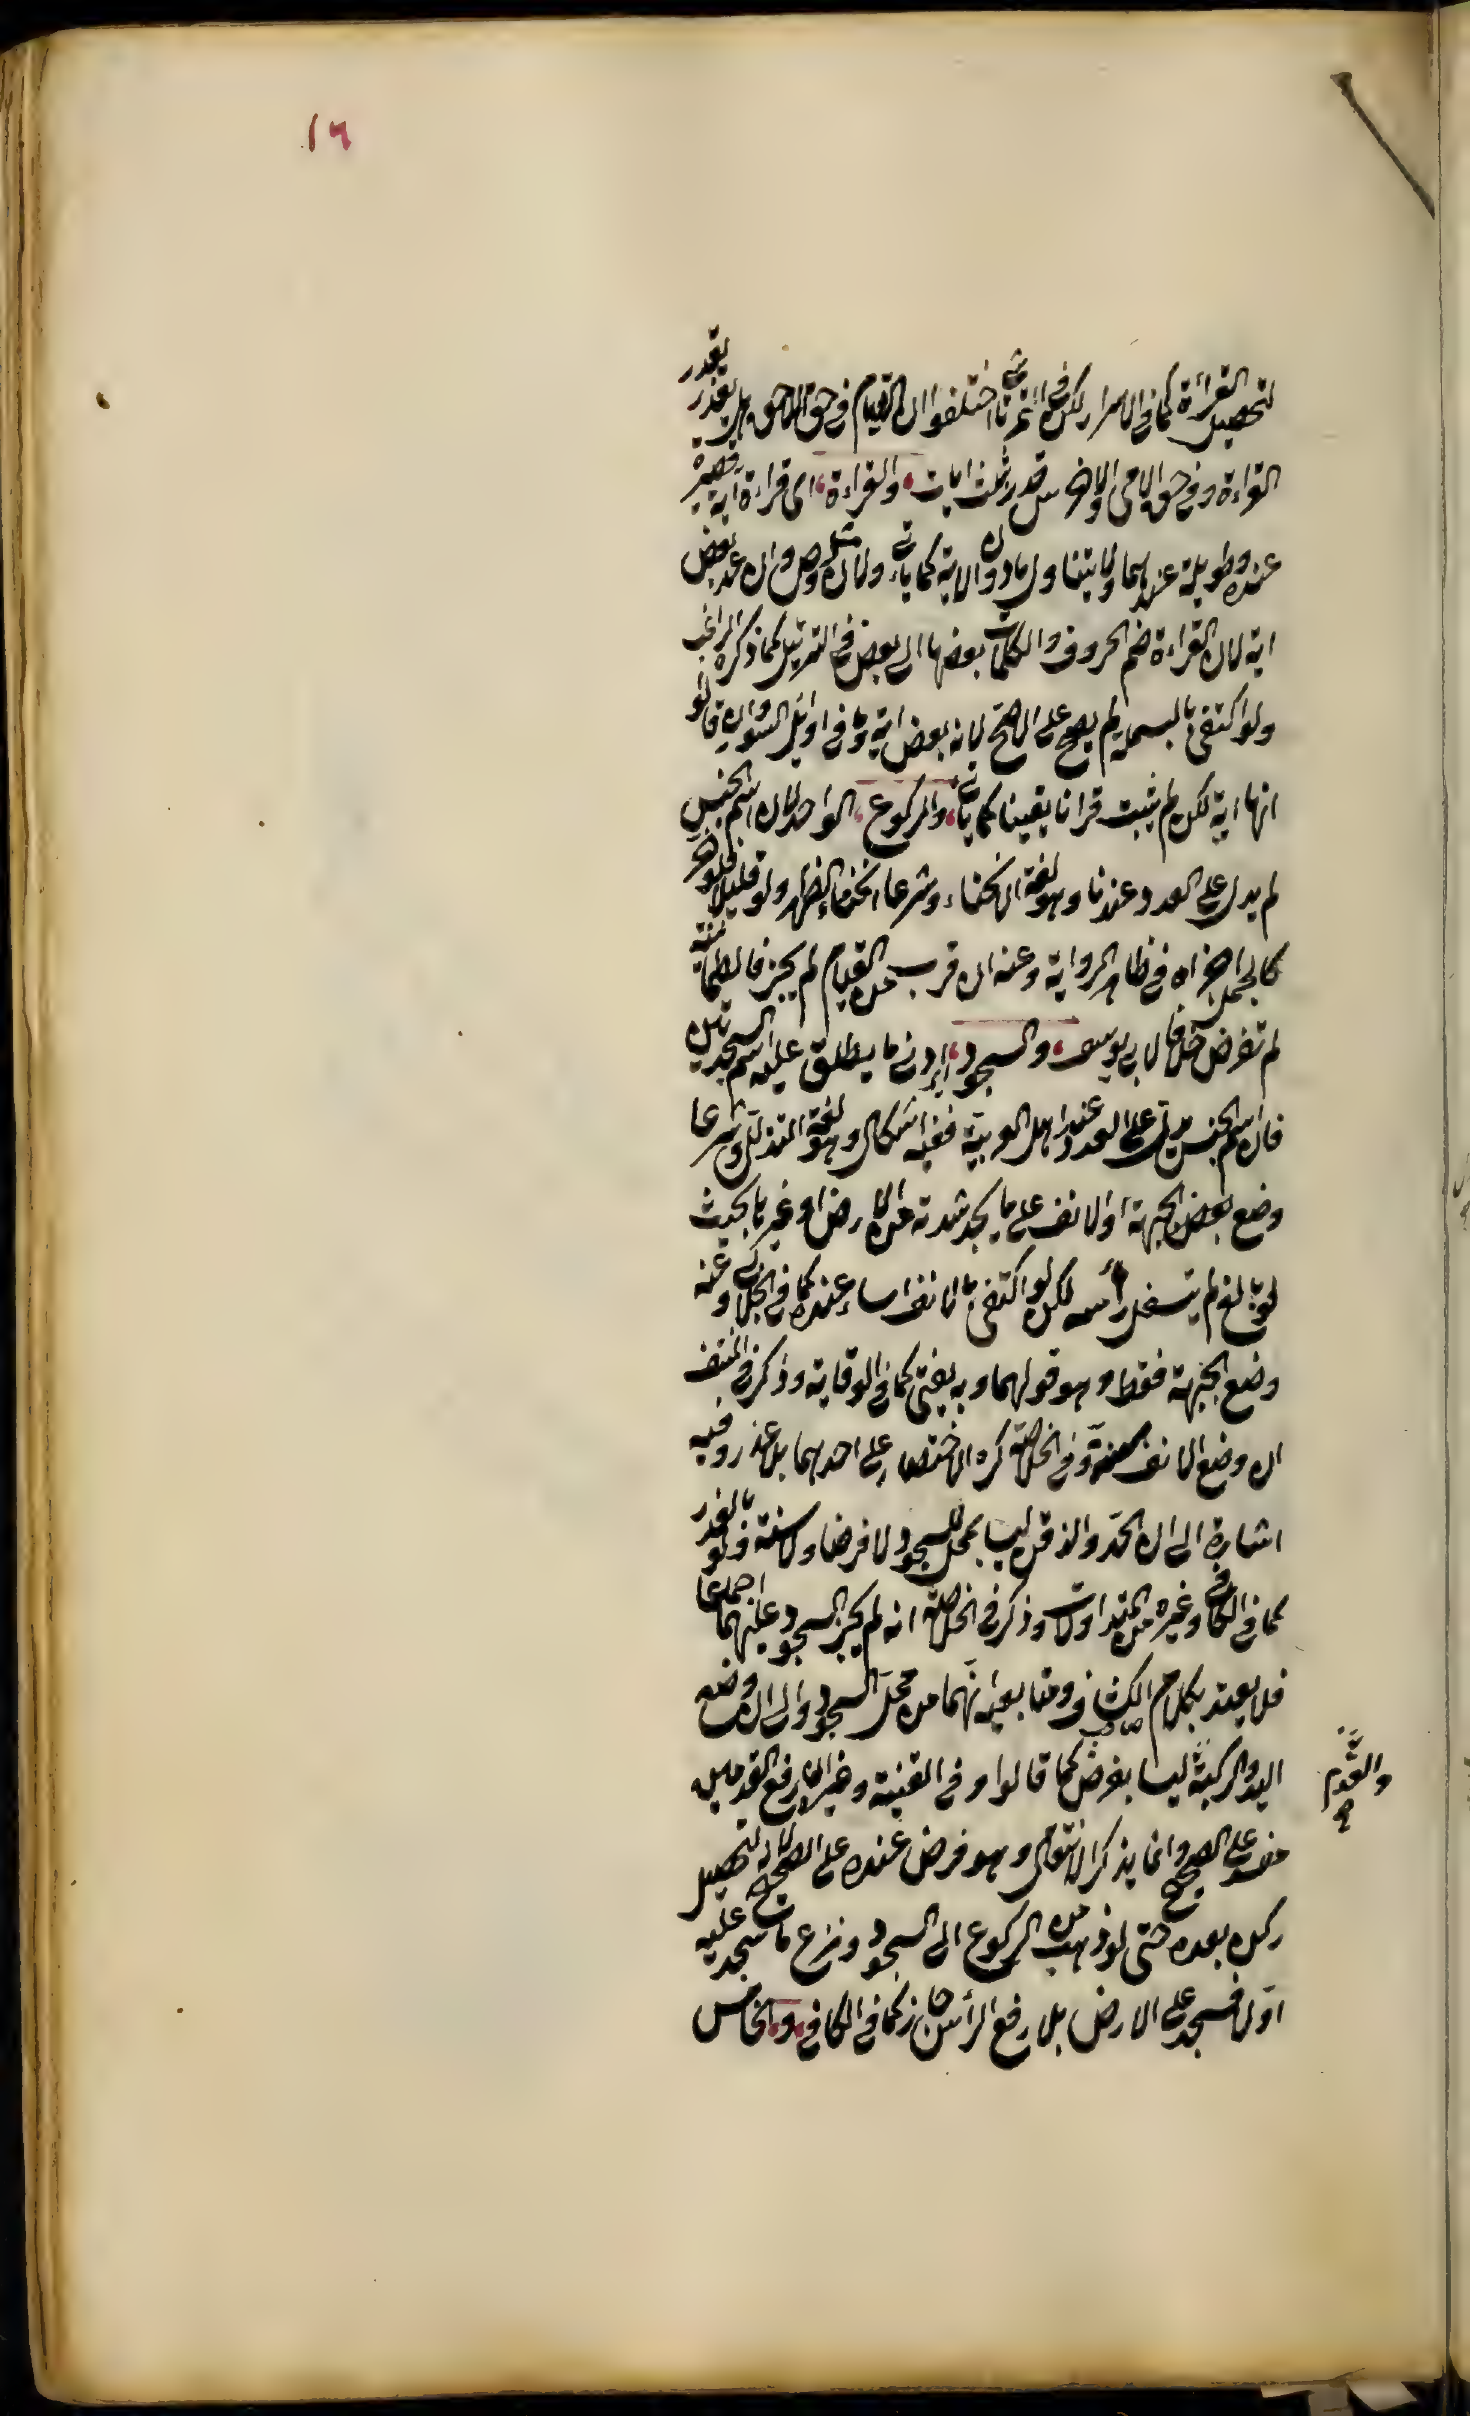 ١٦
لتحصيل القراءة كما في الاسرار لكن في التمرتاشي اختلفوا ان القيام في حق اللاحق هل يقدر بقدر
القراءة وفي حق الامي والاخرس قدر ثلث ايات والقراءة اى قراءة آية قصيرة
عنده وطويلة عندهما ولا يتناول ما دون الاية كما يأتي ولا مثل ص و ن وان عد بعض
اية لان القراءة ضم الحروف والكلمات بعضها الى بعض في الترتيل كما ذكره الراغب
ولو اكتفى بالبسملة لم يصح على الاصح لانه بعض اية وفي اوائل السور وان قالوا
انها اية لكن لم يثبت قرانا يقينا كما يأتي والركوع الواحد لان اسم الجنس
لم يدل على العدد عندنا وهو لغة الانحناء وشرعا انحناء الظهر ولو قليلا فلو خر
كالجمل اجزاه في ظاهر الرواية وعنه ان قرب من القيام لم يجز فالطمانينة
لم تفرض خلافا لابي يوسف والسجود ادنى ما يطلق عليه اسم السجدتين
فان اسم الجنس يدل على العدد عند اهل العربية ففيه اشكال وهو لغة التذلل وشرعا
وضع بعض الجبهة او الانف على ما يجد شدته من الارض او غيرها بحيث
لو بالغ لم يتسفل رأسه لكن لو اكتفى بالانف اساء عنده كما في الجلابي وعنه
وضع الجبهة فقط وهو قولهما وبه يفتى كما في الوقاية وذكر في النتف
ان وضع الانف سنة وفي الخلاصة كره الاختصار على احدهما بلا عذر وفيه
اشارة الى ان الخد والذقن ليسا بمحل للسجود لا فرضا ولا سنة ولو بالعذر
كما في الكافي وغيره من المتداولات وذكر في الخلاصة انه لم يجز السجود عليهما اجماعا
فلا يعتد بكلام الكشاف ومتابعيه انهما من محل السجود والى ان وضع
اليد والركبة ليسا بفرض كما قالوا وفي القنية وغيرها رفع القدمين
والقدم
مفسد على الصحيح وانما يذكر الانتقال وهو فرض عنده على الصحيح لانه لتحصيل
ركن بعده حتى لو ذهب من الركوع الى السجود ونزع ما سجد عليه
اولا فسجد على الارض بلا رفع الرأس جاز كما في الكافي و الخامس